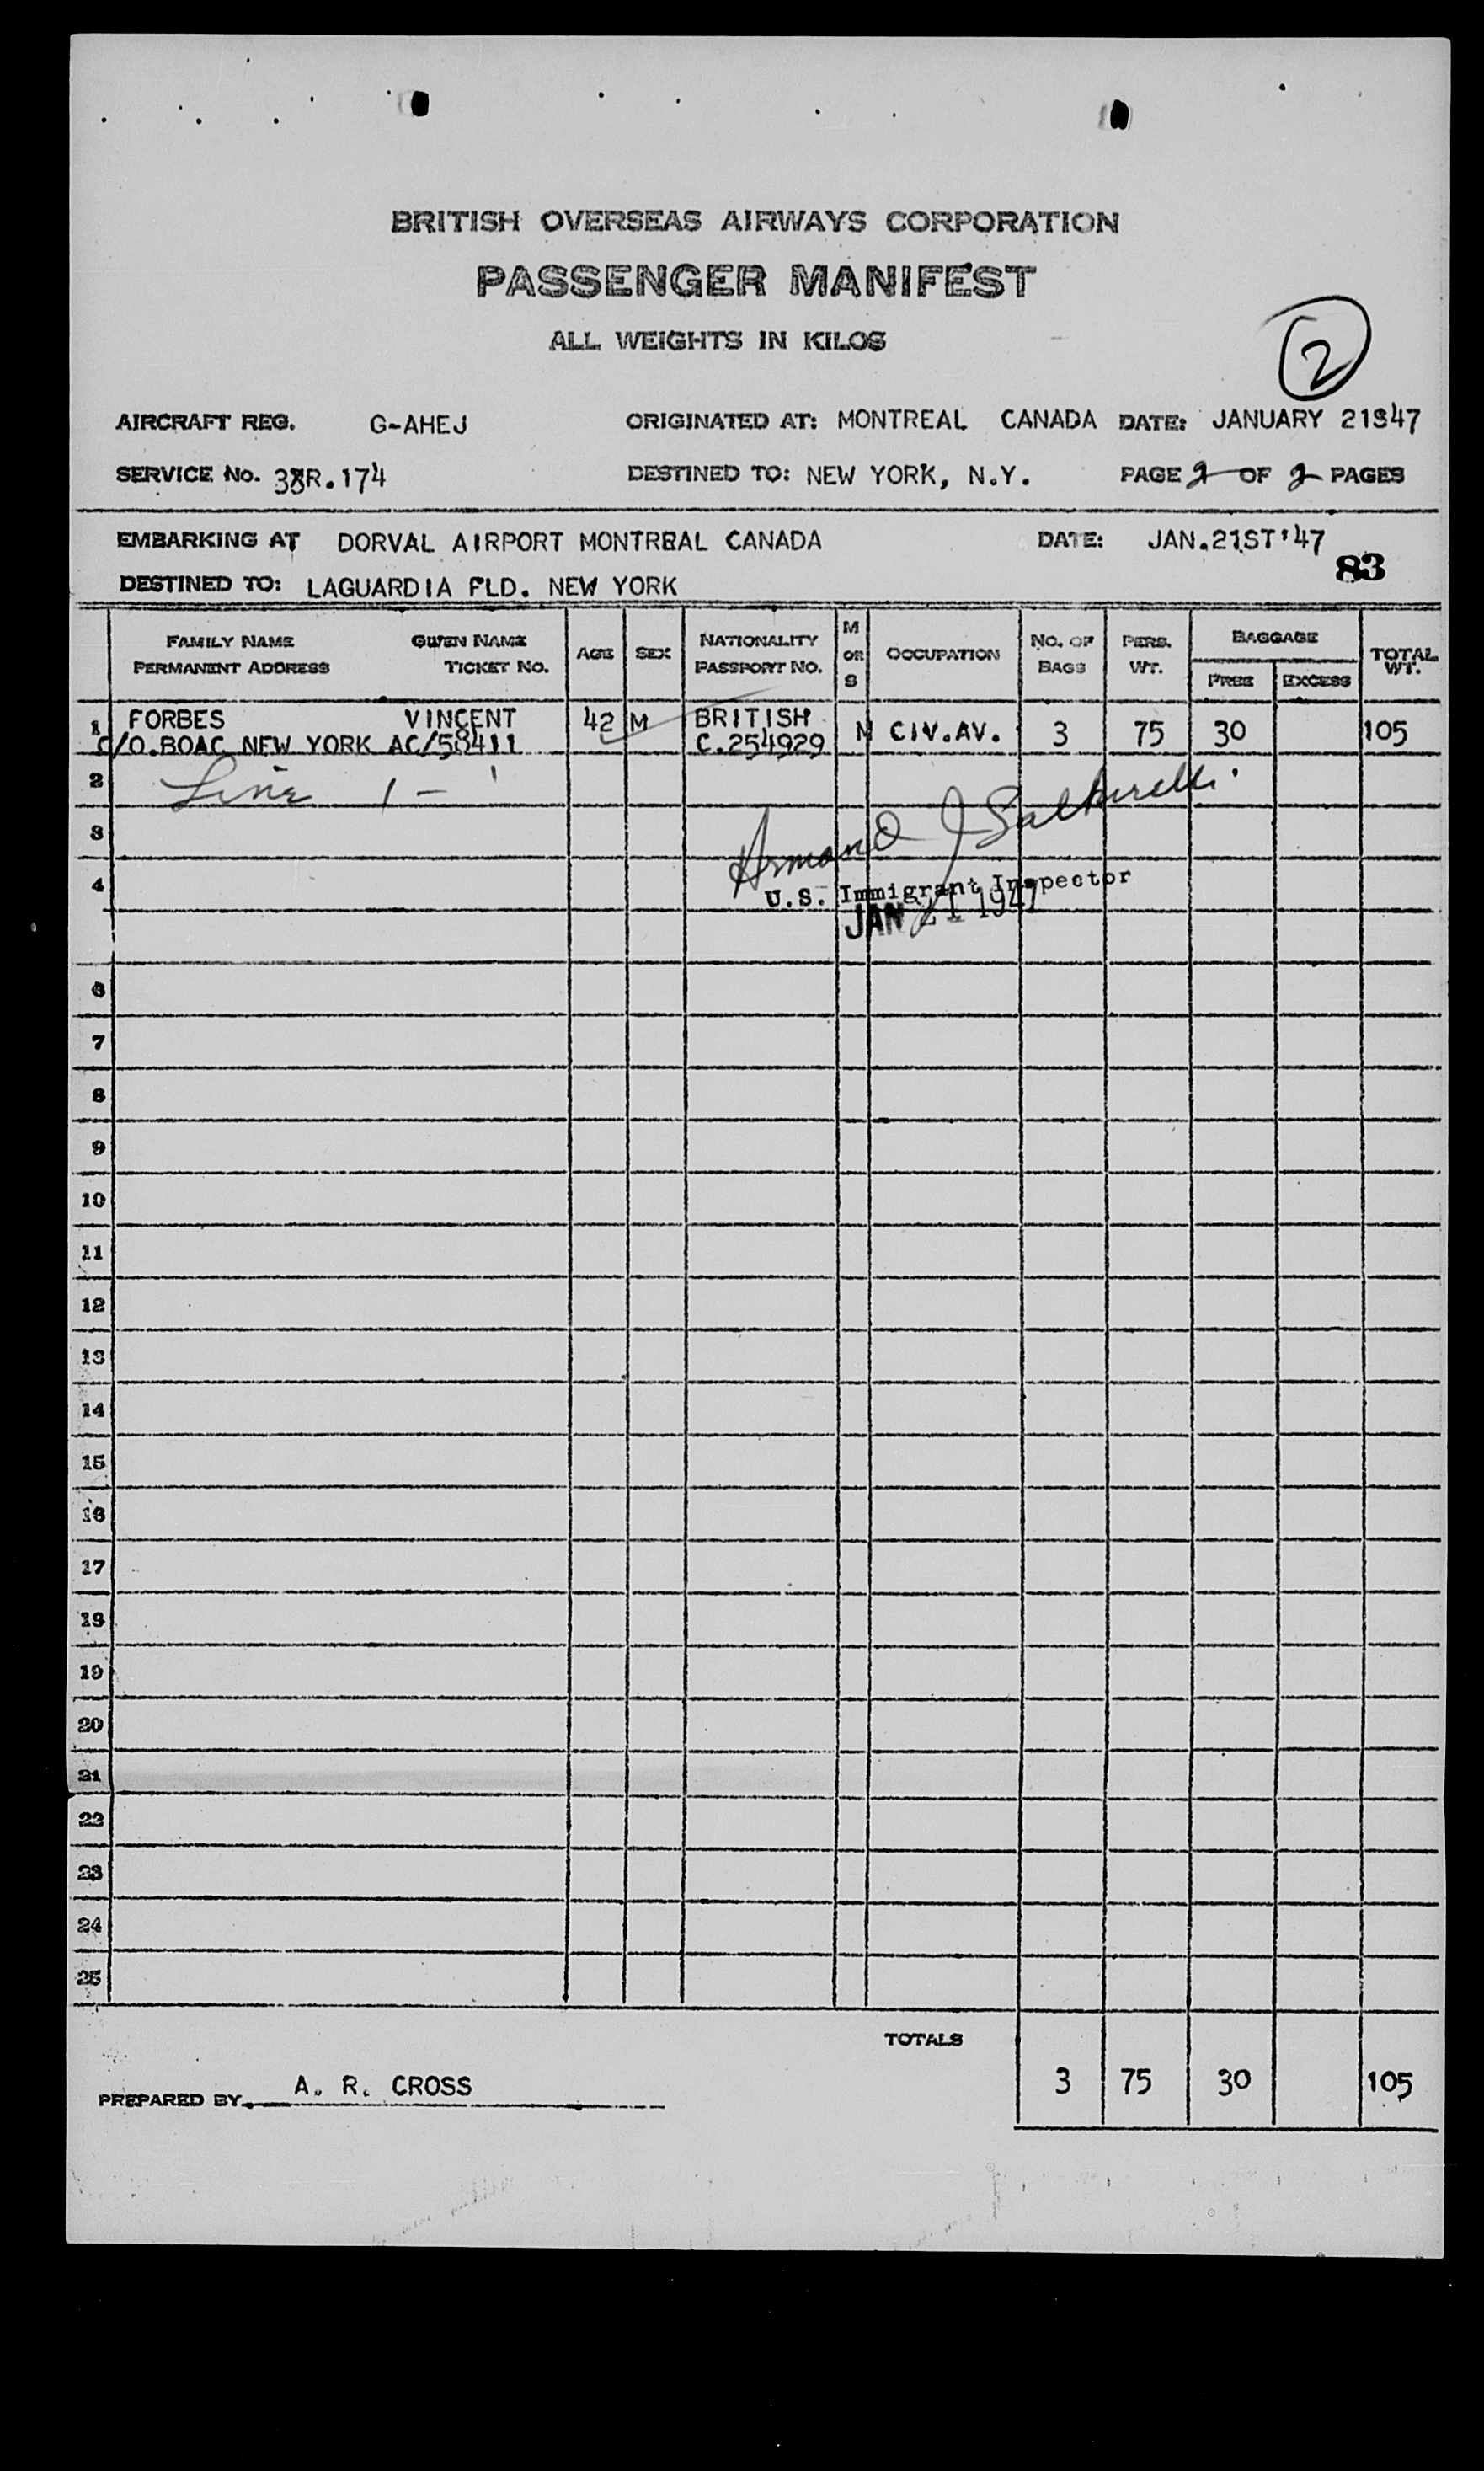 BRITISH OVERSEAS AIRWAYS CORPORATION
PASSENGER MANIFEST
ALL WEIGHTS IN KILOS
2
AIRCRAFT REG. G-AHEJ ORIGINATED AT: MONTREAL CANADA DATE: JANUARY 21S47
SERVICE No. R.174 DESTINED TO: NEW YORK, N.Y. PAGE 2 OF 2 PAGES
EMBARKING AT DORVAL AIRPORT MONTREAL CANADA DATE: JAN.21ST'47
83
DESTINED TO: LAGUARDIA FLD. NEW YORK
FAMILY NAME GIVEN NAME AGE SEX NATIONALITY M OR S OCCUPATION NO. OF BAGS PERS. WT. BAGGAGE TOTAL WT.
PERMANENT ADDRESS TICKET NO. PASSPORT NO. FREE EXCESS
1 FORBES VINCENT 42 M BRITISH M CIV.AV. 3 75 30 105
C/O.BOAC NEW YORK AC/58411 C.254929
2 Line 1 -
3 Armand J
4 U.S. Immigrant Inspector
JAN 21 1947
6
7
8
9
10
11
12
13
14
15
16
17
18
19
20
21
22
23
24
25
TOTALS
3 75 30 105
PREPARED BY A. R. CROSS